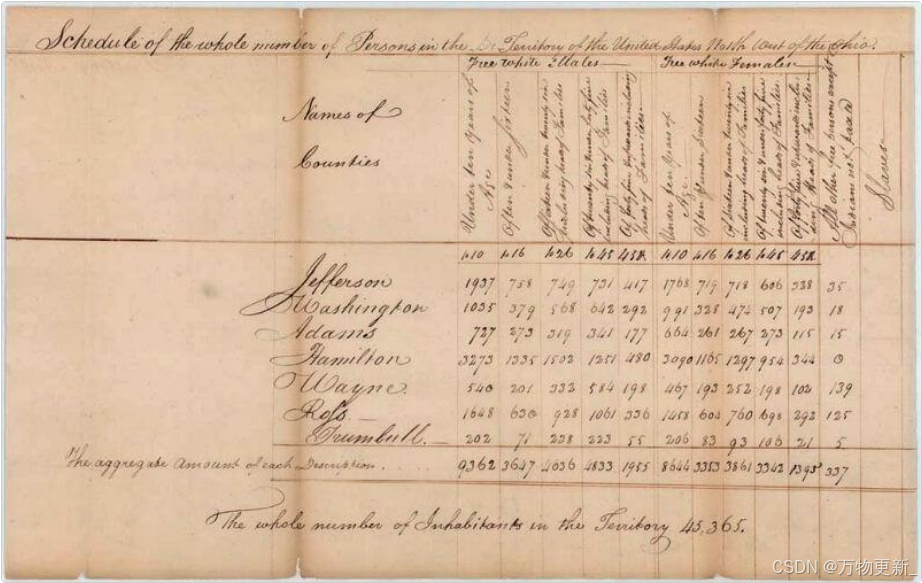 Schedule of the whole number of Persons in the Territory of the United States North West of the Ohio.
Free white Males Free white Females
Names of
Counties
Under ten Years of Age
Of ten & under Sixteen
Of Sixteen & under twenty six including heads of Families
Of twenty six & under forty five including heads of Families
Of forty five & upwards including heads of Families
Under ten Years of Age
Of ten & under Sixteen
Of Sixteen & under twenty six including heads of Families
Of twenty six & under forty five including heads of Families
Of forty five & upwards including heads of Families
All other free persons except Indians not taxed
Slaves
to 10 to 16 to 26 to 45 45& to 10 to 16 to 26 to 45 45&
Jefferson 1937 758 749 731 417 1768 719 718 606 328 35
Washington 1035 379 568 642 292 991 328 474 507 193 18
Adams 727 273 319 341 177 664 261 267 273 115 15
Hamilton 3273 1335 1502 1251 480 3090 1165 1297 954 344 0
Wayne 540 201 332 584 198 467 193 252 198 102 139
Ross 1648 630 928 1061 336 1458 604 760 698 292 125
Trumbull 202 71 238 223 55 206 83 93 106 21 5
The aggregate amount of each Description 9362 3647 4636 4833 1955 8644 3353 3861 3342 1395 337
The whole number of Inhabitants in the Territory 45,365.
CSDN @万物更新_